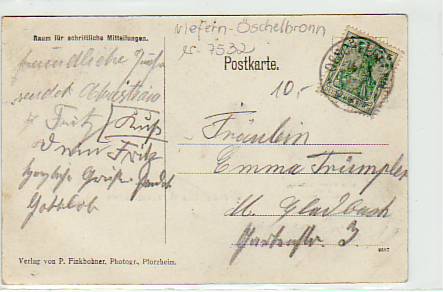 Raum für schriftliche Mitteilungen.
Niefern-Öschelbronn
7532
Postkarte.
10,-
freundliche Grüße
sendet
Fritz
Kuß
Fritz
herzliche Grüße sendet
Gottlob
Fräulein
Emma Trümpler
M. Gladbach
Gartenstr. 3.
Verlag von P. Finkbohner, Photogr., Pforzheim.